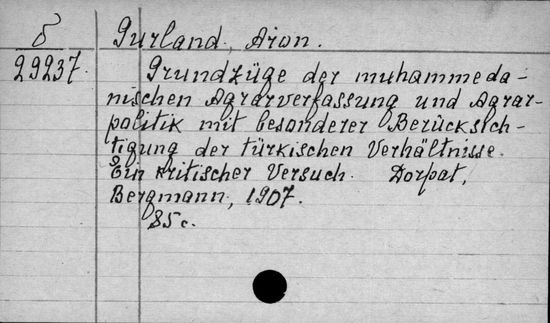 δ Gurland, Aron.
29237. Grundzüge der muhammeda-
nischen Agrarverfassung und Agrar-
politik mit besonderer Berücksich-
tigung der türkischen Verhältnisse.
Ein kritischer Versuch. Dorpat,
Bergmann, 1907.
85 c.